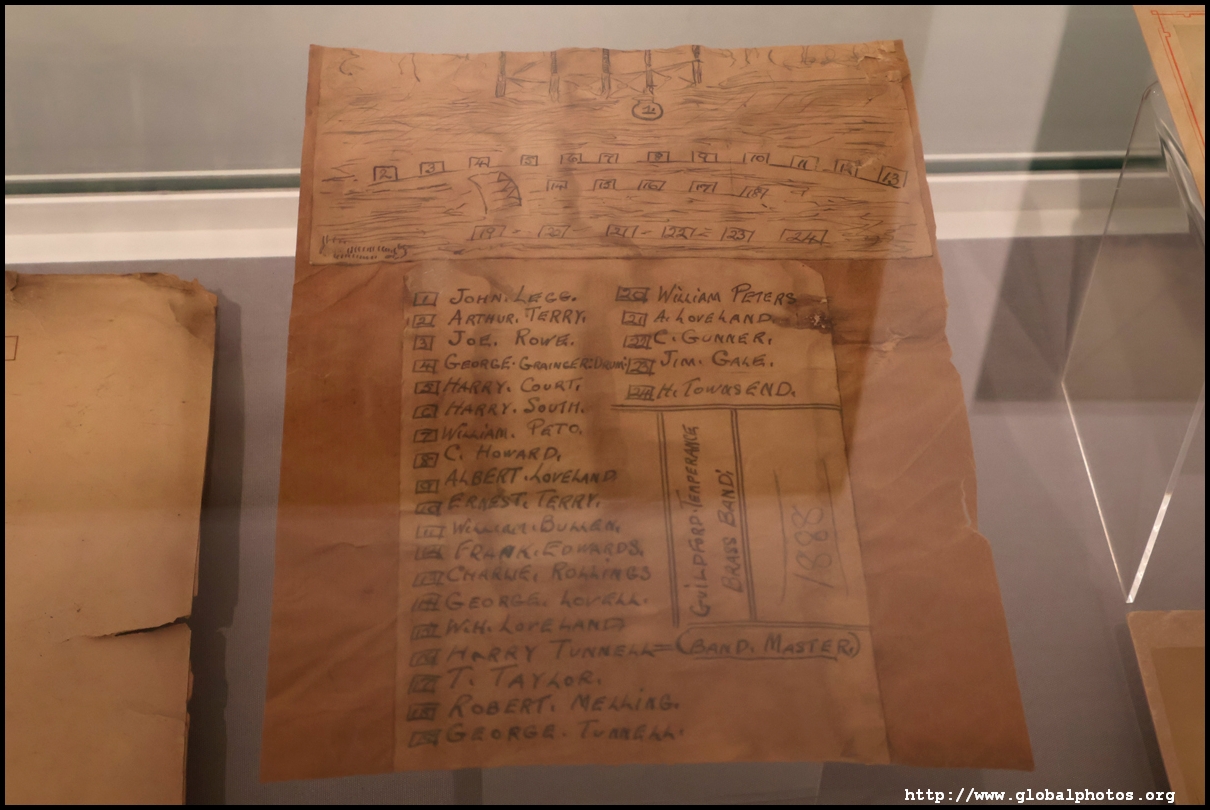 1
2 3 4 5 6 7 8 9 10 11 12 13
14 15 16 17 18
19 - 20 - 21 - 22 = 23 24
1 JOHN. LEGG.
2 ARTHUR. TERRY.
3 JOE. ROWE.
4 GEORGE. GRAINGER. DRUM.
5 HARRY. COURT.
6 HARRY. SOUTH.
7 WILLIAM. PETO.
8 C. HOWARD.
9 ALBERT. LOVELAND
10 ERNEST. TERRY.
11 WILLIAM. BULLEN.
12 FRANK. EDWARDS.
13 CHARLIE. ROLLINGS
14 GEORGE. LOVELL.
15 W.H. LOVELAND
16 HARRY TUNNELL = (BAND. MASTER.)
17 T. TAYLOR.
18 ROBERT. MELLING.
19 GEORGE. TUNNELL.
20 WILLIAM PETERS
21 A. LOVELAND.
22 C. GUNNER.
23 JIM. GALE.
24 H. TOWNSEND.
GUILDFORD. TEMPERANCE
BRASS BAND.
1888
http://www.globalphotos.org